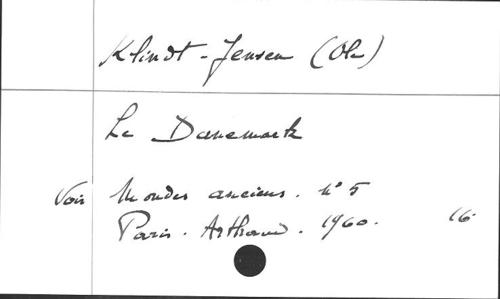 Klindt-Jensen (Ole)
Le Danemark
Voir Mondes anciens. n° 5
Paris. Arthaud. 1960. 16.